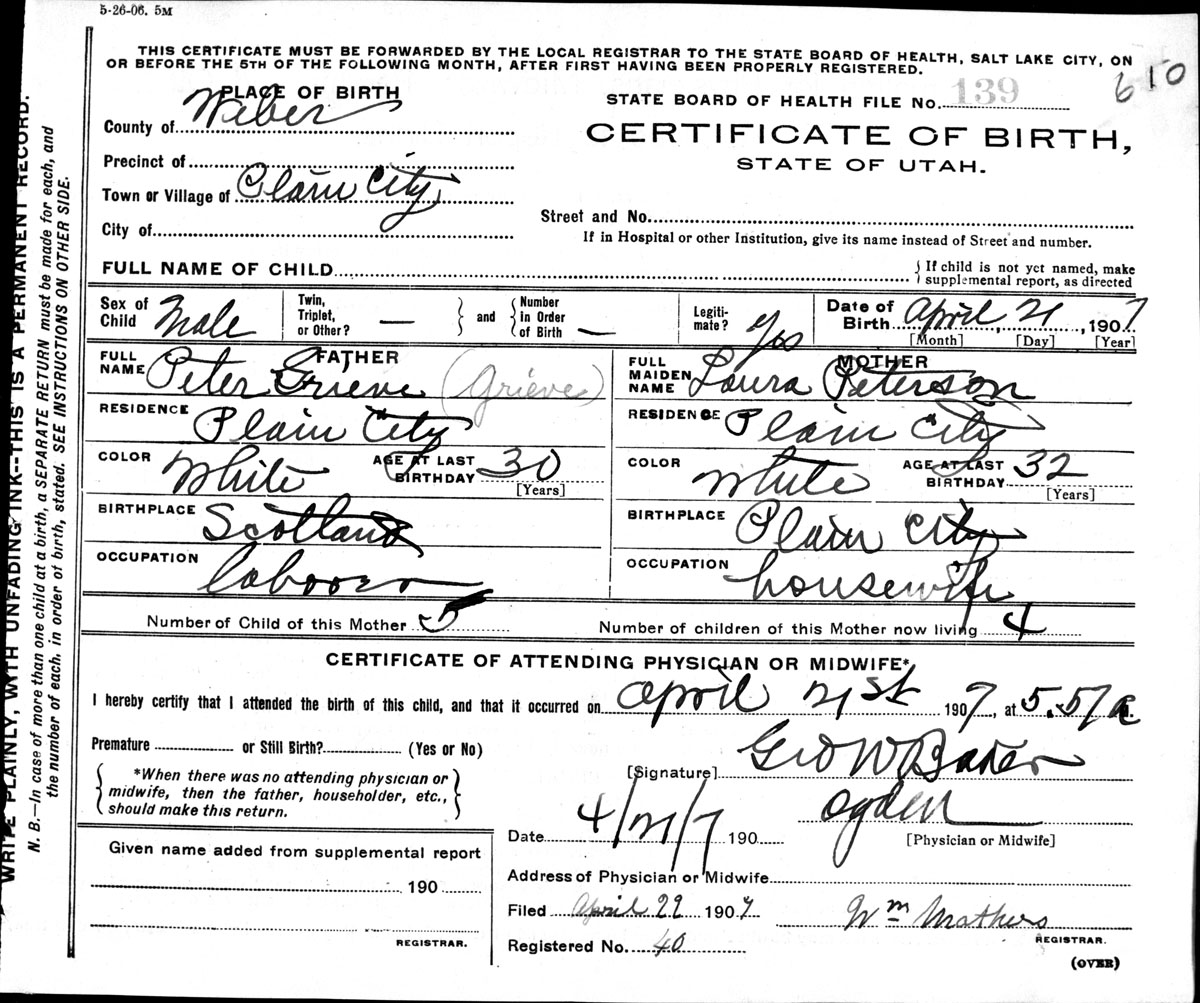 5-26-06. 5M
THIS CERTIFICATE MUST BE FORWARDED BY THE LOCAL REGISTRAR TO THE STATE BOARD OF HEALTH, SALT LAKE CITY, ON
OR BEFORE THE 5TH OF THE FOLLOWING MONTH, AFTER FIRST HAVING BEEN PROPERLY REGISTERED.
610
PLACE OF BIRTH
STATE BOARD OF HEALTH FILE No. 139
County of Weber
CERTIFICATE OF BIRTH,
STATE OF UTAH.
Precinct of
Town or Village of Plain City
City of
Street and No.
If in Hospital or other Institution, give its name instead of Street and number.
FULL NAME OF CHILD
{ If child is not yet named, make
supplemental report, as directed
Sex of Child Male
Twin, Triplet, or Other? — } and { Number in Order of Birth —
Legiti- mate? Yes
Date of Birth April, 21, 1907
[Month] [Day] [Year]
FATHER
FULL NAME Peter Grieve (Grieve)
RESIDENCE Plain City
COLOR White AGE AT LAST BIRTHDAY 30
[Years]
BIRTHPLACE Scotland
OCCUPATION laborer
MOTHER
FULL MAIDEN NAME Laura Peterson
RESIDENCE Plain City
COLOR White AGE AT LAST BIRTHDAY 32
[Years]
BIRTHPLACE Plain City
OCCUPATION housewife
Number of Child of this Mother 5
Number of children of this Mother now living 4
CERTIFICATE OF ATTENDING PHYSICIAN OR MIDWIFE*
I hereby certify that I attended the birth of this child, and that it occurred on April 21st 1907, at 5.57 a m.
Premature or Still Birth? (Yes or No)
{ *When there was no attending physician or
midwife, then the father, householder, etc.,
should make this return. }
[Signature] Geo W Baker
Ogden
[Physician or Midwife]
Date 4/21/7 190
Given name added from supplemental report
190
REGISTRAR.
Address of Physician or Midwife
Filed April 22 1907
Wm Mathers
REGISTRAR.
Registered No. 40
(OVER)
WRITE PLAINLY, WITH UNFADING INK--THIS IS A PERMANENT RECORD.
N. B.—In case of more than one child at a birth, a SEPARATE RETURN must be made for each, and
the number of each, in order of birth, stated. SEE INSTRUCTIONS ON OTHER SIDE.